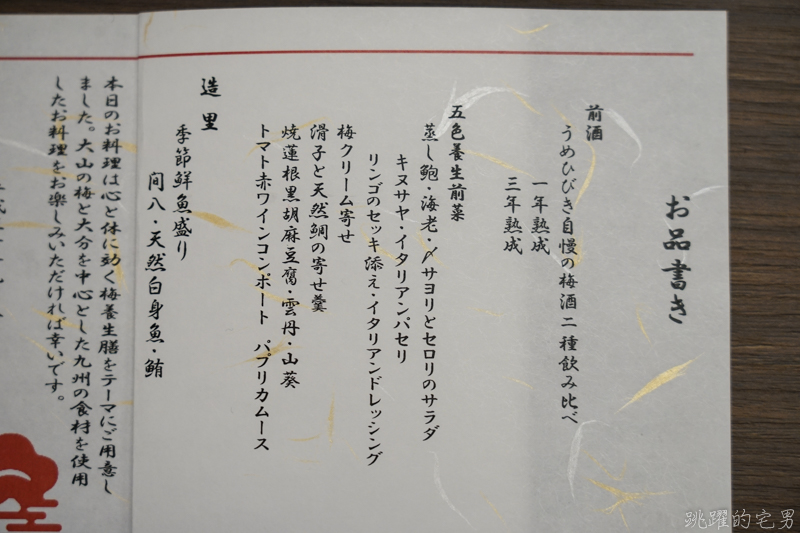 お品書き
前酒
うめひびき自慢の梅酒二種飲み比べ
一年熟成
三年熟成
五色養生前菜
蒸し鮑・海老・〆サヨリとセロリのサラダ
キヌサヤ・イタリアンパセリ
リンゴのセッキ添え・イタリアンドレッシング
梅クリーム寄せ
滑子と天然鯛の寄せ羹
焼蓮根黒胡麻豆腐・雲丹・山葵
トマト赤ワインコンポート パプリカムース
造里
季節鮮魚盛り
間八・天然白身魚・鮪
本日のお料理は心と体に効く梅養生膳をテーマにご用意し
ました。大山の梅と大分を中心とした九州の食材を使用
したお料理をお楽しみいただければ幸いです。
跳躍的宅男